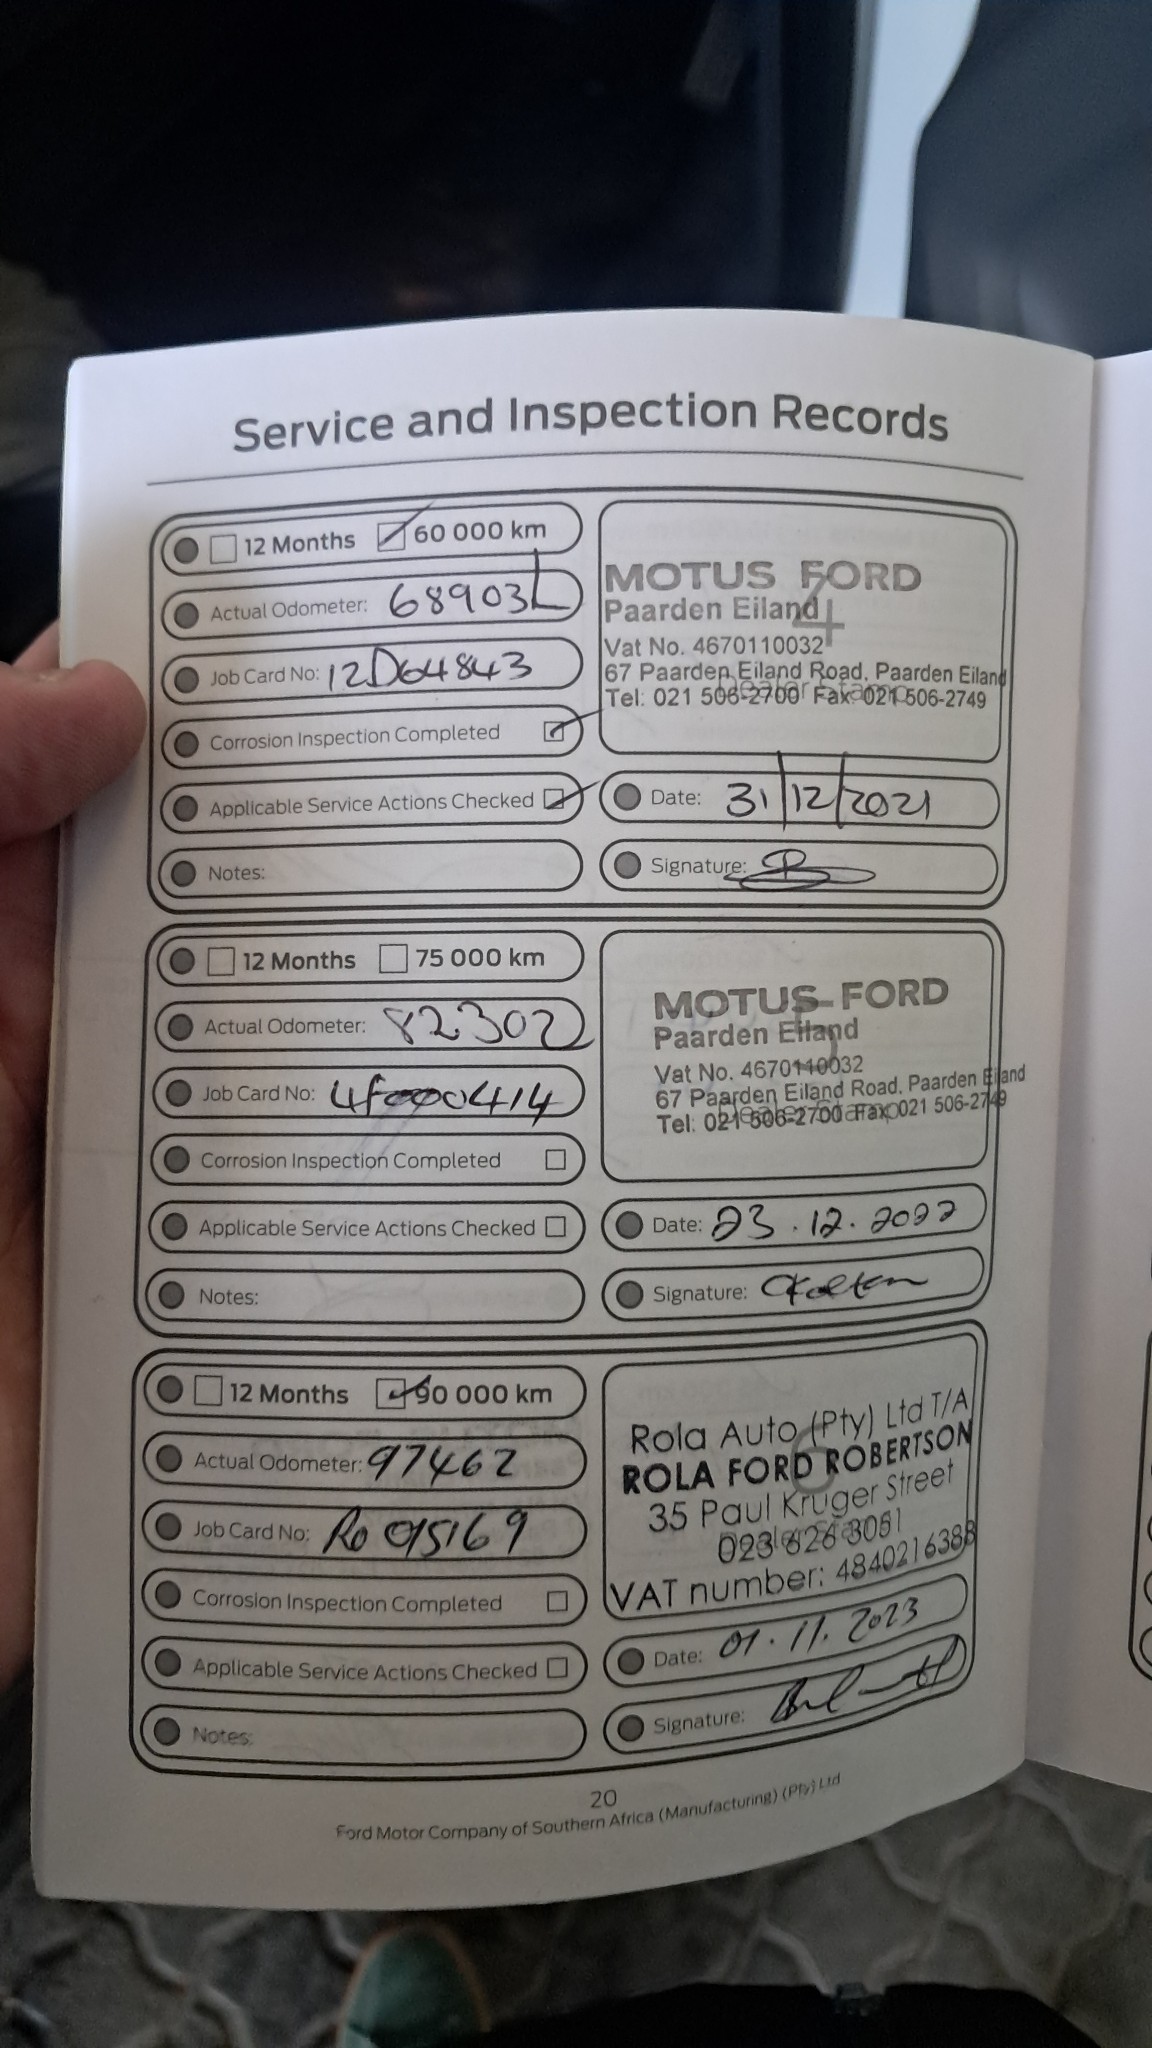 Service and Inspection Records
12 Months 60 000 km
Actual Odometer: 68903
Job Card No: 12D64843
Corrosion Inspection Completed
Applicable Service Actions Checked
Notes:
4
MOTUS FORD
Paarden Eiland
Vat No. 4670110032
67 Paarden Eiland Road, Paarden Eiland
Tel: 021 506-2700 Fax: 021 506-2749
Dealer Stamp
Date: 31/12/2021
Signature:
12 Months 75 000 km
Actual Odometer: 82302
Job Card No: 4f000414
Corrosion Inspection Completed
Applicable Service Actions Checked
Notes:
5
MOTUS FORD
Paarden Eiland
Vat No. 4670110032
67 Paarden Eiland Road, Paarden Eiland
Tel: 021 506-2700 Fax: 021 506-2749
Dealer Stamp
Date: 23.12.2022
Signature:
12 Months 90 000 km
Actual Odometer: 97462
Job Card No: Ro 095169
Corrosion Inspection Completed
Applicable Service Actions Checked
Notes:
6
Rola Auto (Pty) Ltd T/A
ROLA FORD ROBERTSON
35 Paul Kruger Street
023 626 3051
VAT number: 4840216388
Dealer Stamp
Date: 01.11.2023
Signature:
20
Ford Motor Company of Southern Africa (Manufacturing) (Pty) Ltd